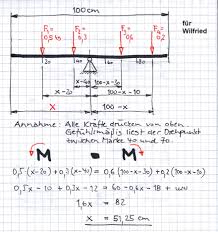 100 cm
für
Wilfried
F₁
0,5
F₂
0,3
F₃
0,6
F₄
0,2
20
40
x-40
100-x-30
80
x-20
100-x-20
x
100-x
Annahme: Alle Kräfte drücken von oben.
Gefühlsmäßig liegt der Drehpunkt
zwischen Marke 40 und 70.
M = M
0,5(x-20)+0,3(x-40) = 0,6(100-x-30)+0,2(100-x-20)
0,5x-10 + 0,3x-12 = 60-0,6x-18 +
1,6x = 82
x = 51,25 cm